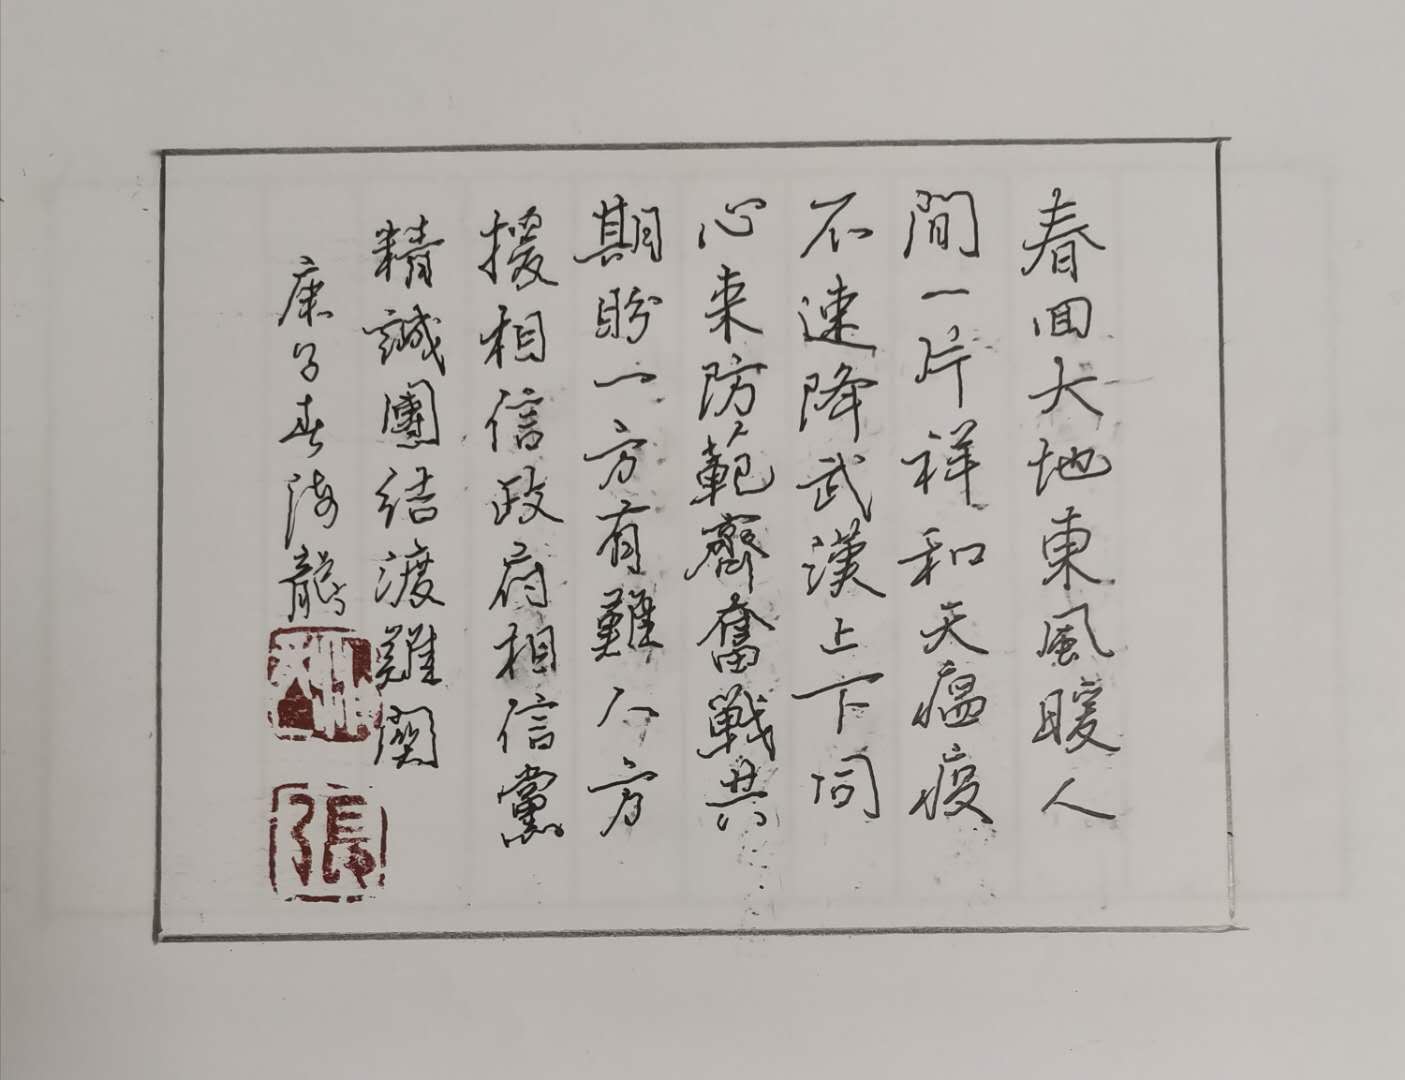 春回大地東風暖人
間一片祥和天瘟疫
不速降武漢上下同
心来防範齊奮戰共
期盼一方有難八方
援相信政府相信黨
精誠團結渡難関
庚子春海龍
張